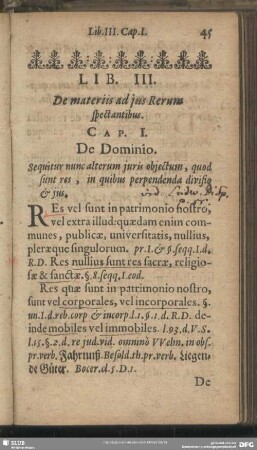 Lib. III. Cap. I. 45
LIB. III.
De materiis ad jus Rerum
spectantibus.
CAP. I.
De Dominio.
Sequitur nunc alterum juris objectum, quod
sunt res, in quibus perpendenda divisio
& jus.
REs vel sunt in patrimonio nostro,
vel extra illud: quædam enim com-
munes, publicæ, universitatis, nullius,
pleræque singulorum. pr. I. & §. seqq. I. d.
R.D. Res nullius sunt res sacræ, religio-
sæ & sanctæ. §. 8. seqq. I. eod.
Res quæ sunt in patrimonio nostro,
sunt vel corporales, vel incorporales. §.
un. I. d. reb. corp & incorp l. 1. §. 1. d. R.D. de-
inde mobiles vel immobiles. l. 93. d. V. S.
l. 15. §. 2. d. re jud. vid. omninò VVehn. in obs.
pr. verb. Fahrnuß. Besold. th. pr. verb. Liegen-
de Güter. Bocer. d. 5. D. 1.
De
SLUB